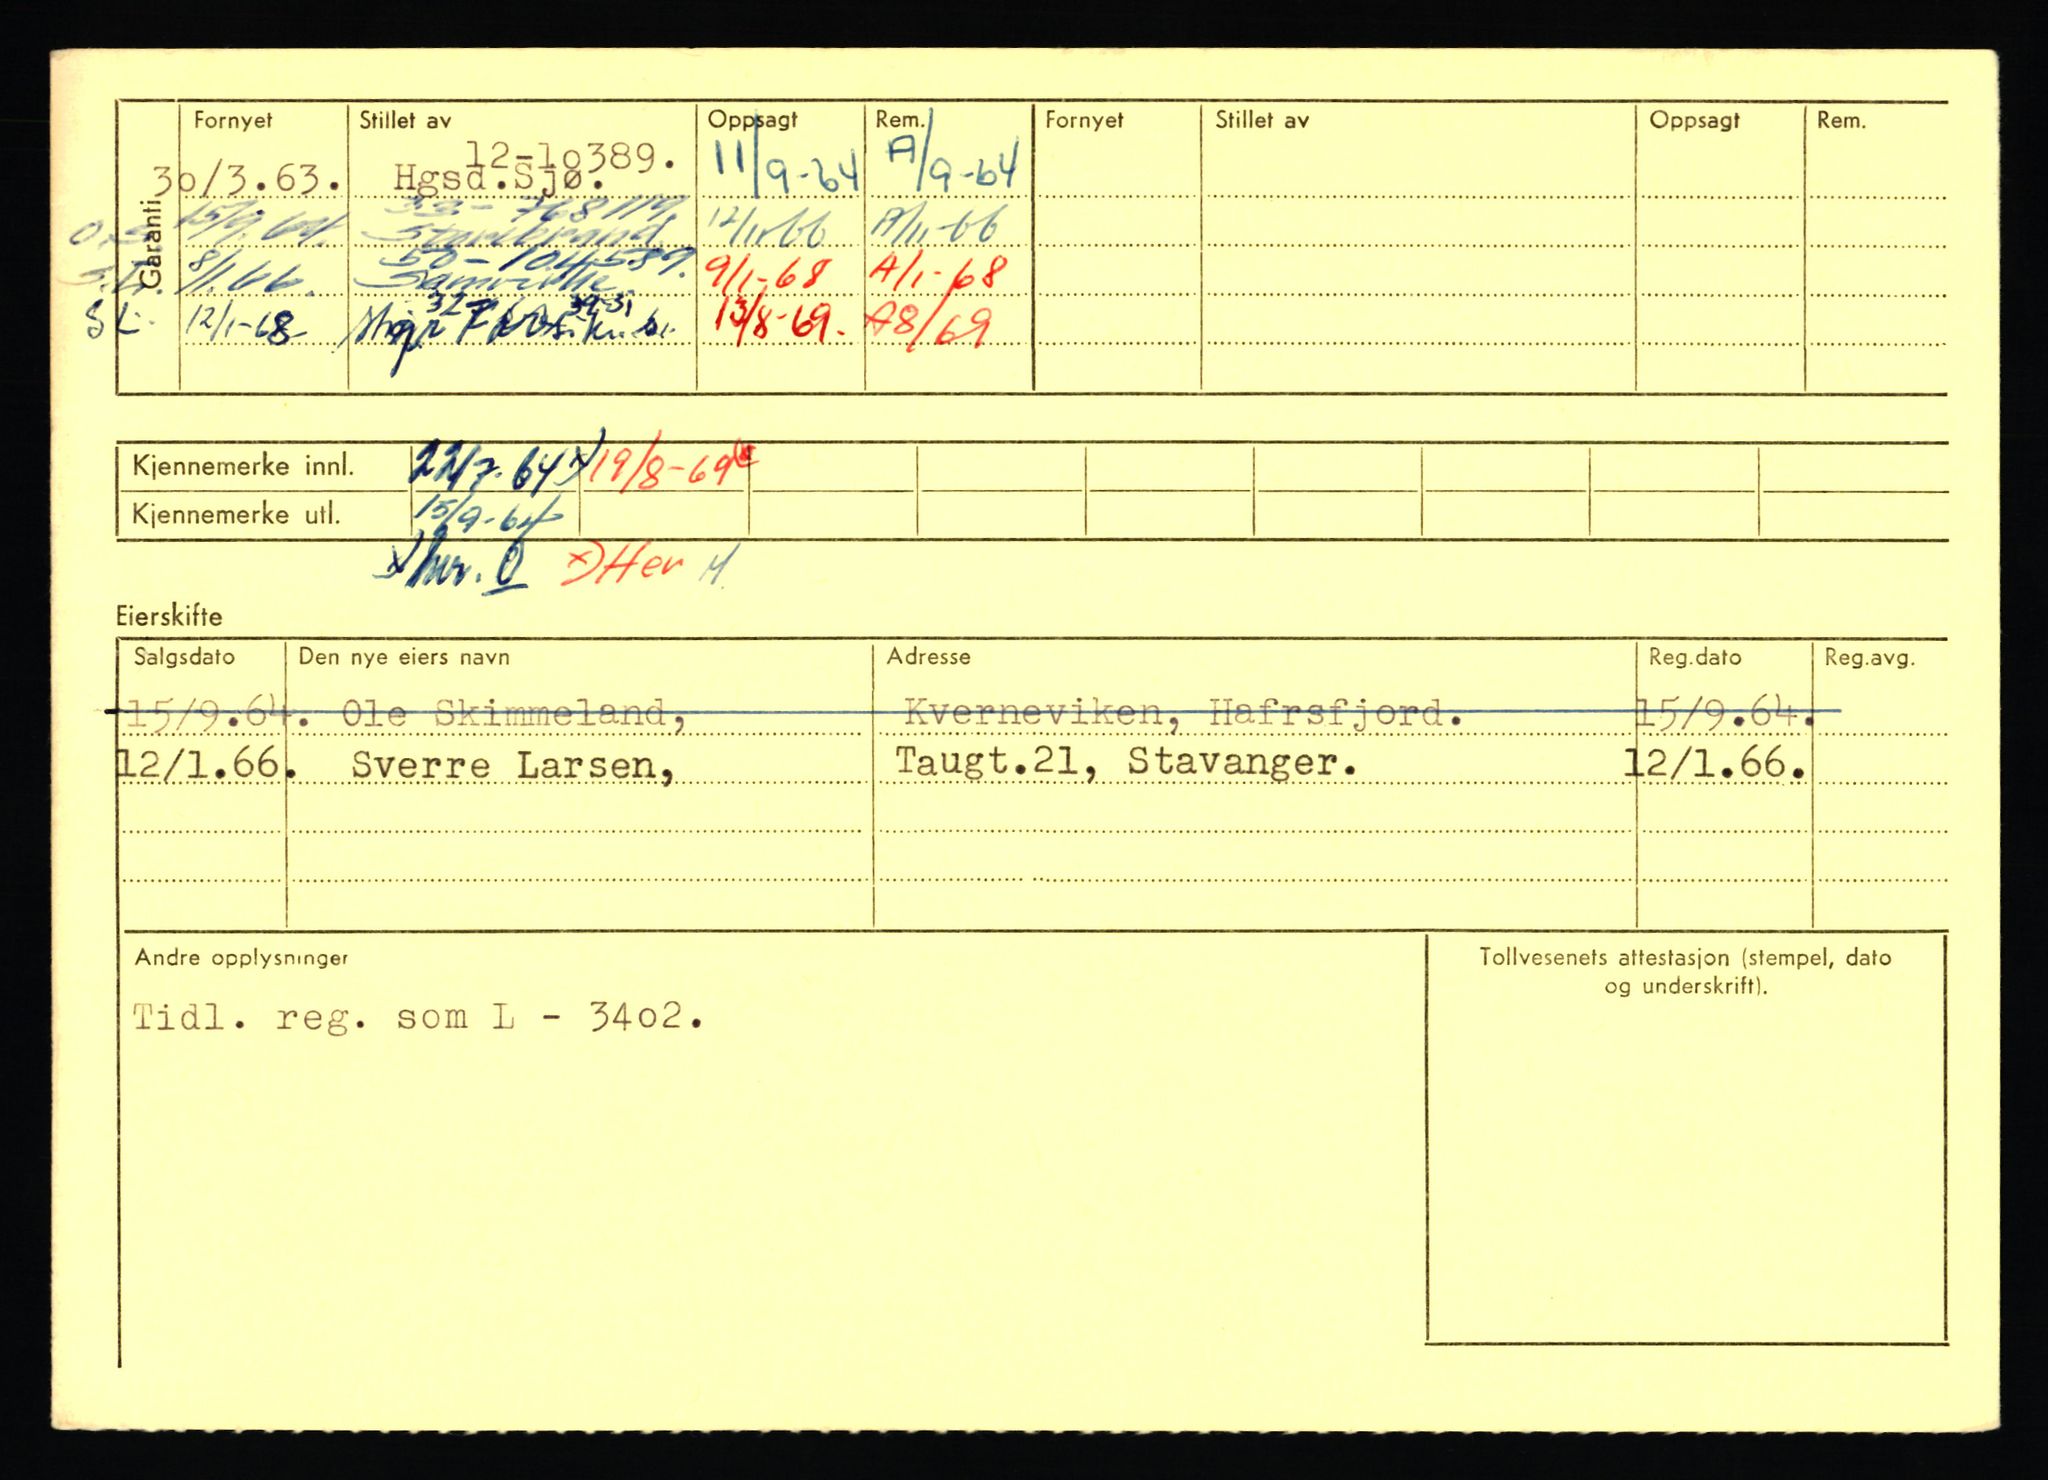 Garanti
Fornyet Stillet av Oppsagt Rem. Fornyet Stillet av Oppsagt Rem.
12-1o389.
3o/3.63. Hgsd.Sjø. 11/9-64 A/9-64
O.S. 15/9.64. Storebrand 12/11-66 A/11-66
S.L. 8/1.66. 9/1-68 A/1-68
S L. 12/1-68 13/8-69. A8/69
Kjennemerke innl. 22/7.64 x) 19/8-69
Kjennemerke utl. 15/9-64
x) her. x) Her
Eierskifte
Salgsdato Den nye eiers navn Adresse Reg.dato Reg.avg.
15/9.64. Ole Skimmeland, Kverneviken, Hafrsfjord. 15/9.64.
12/1.66. Sverre Larsen, Taugt.21, Stavanger. 12/1.66.
Andre opplysninger
Tollvesenets attestasjon (stempel, dato
og underskrift).
Tidl. reg. som L - 34o2.